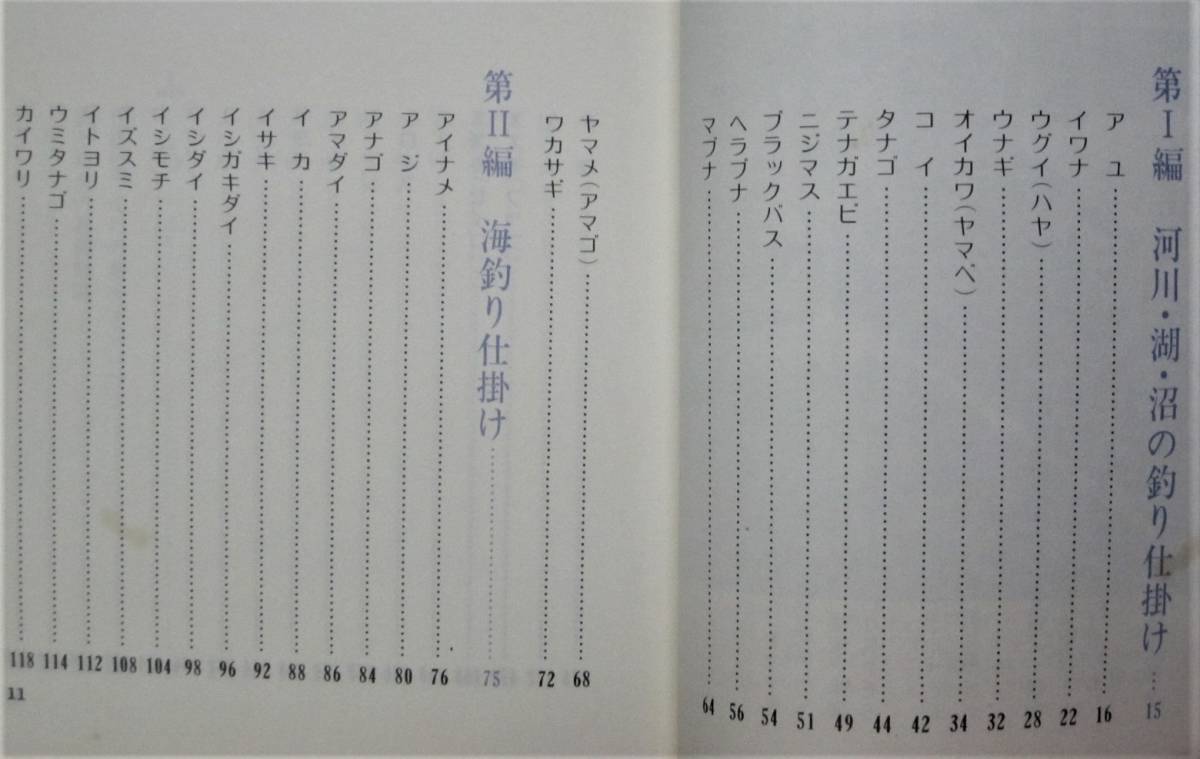 第Ⅰ編 河川・湖・沼の釣り仕掛け……15
ア ユ……16
イワナ……22
ウグイ(ハヤ)……28
ウナギ……32
オイカワ(ヤマベ)……34
コ イ……42
タナゴ……44
テナガエビ……49
ニジマス……51
ブラックバス……54
ヘラブナ……56
マブナ……64
ヤマメ(アマゴ)……68
ワカサギ……72
第Ⅱ編 海釣り仕掛け……75
アイナメ……76
ア ジ……80
アナゴ……84
アマダイ……86
イ カ……88
イサキ……92
イシガキダイ……96
イシダイ……98
イシモチ……104
イズスミ……108
イトヨリ……112
ウミタナゴ……114
カイワリ……118
11